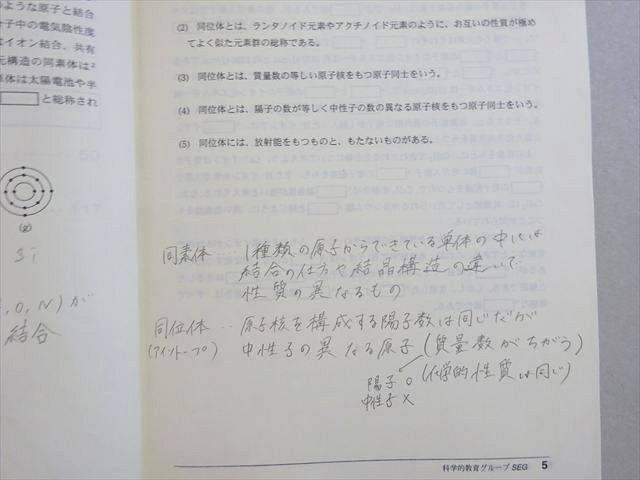 のような原子と結合
子中の電気陰性度
はイオン結合、共有
元構造の同素体は2
単体は太陽電池や半
と総称され
(g)
Si
, O, N) が
結合
(2) 同位体とは、ランタノイド元素やアクチノイド元素のように、お互いの性質が極め
てよく似た元素群の総称である。
(3) 同位体とは、質量数の等しい原子核をもつ原子同士をいう。
(4) 同位体とは、陽子の数が等しく中性子の数の異なる原子核をもつ原子同士をいう。
(5) 同位体には、放射能をもつものと、もたないものがある。
同素体 ‥ 1種類の原子からできている単体の中には
結合の仕方や結晶構造の違いで
性質の異なるもの
同位体 ‥ 原子核を構成する陽子数は同じだが
(アイソトープ) 中性子の異なる原子 (質量数がちがう)
陽子 ○ (化学的性質は同じ)
中性子 ×
科学的教育グループ SEG 5